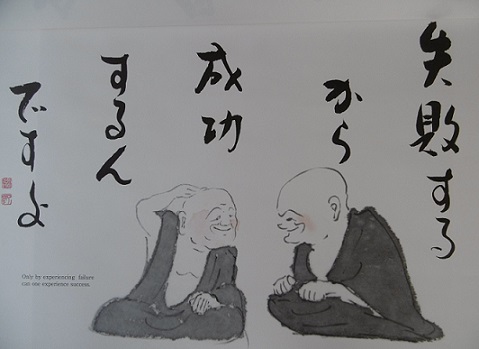 失敗する
から
成功
するん
ですよ
Only by experiencing failure
can one experience success.